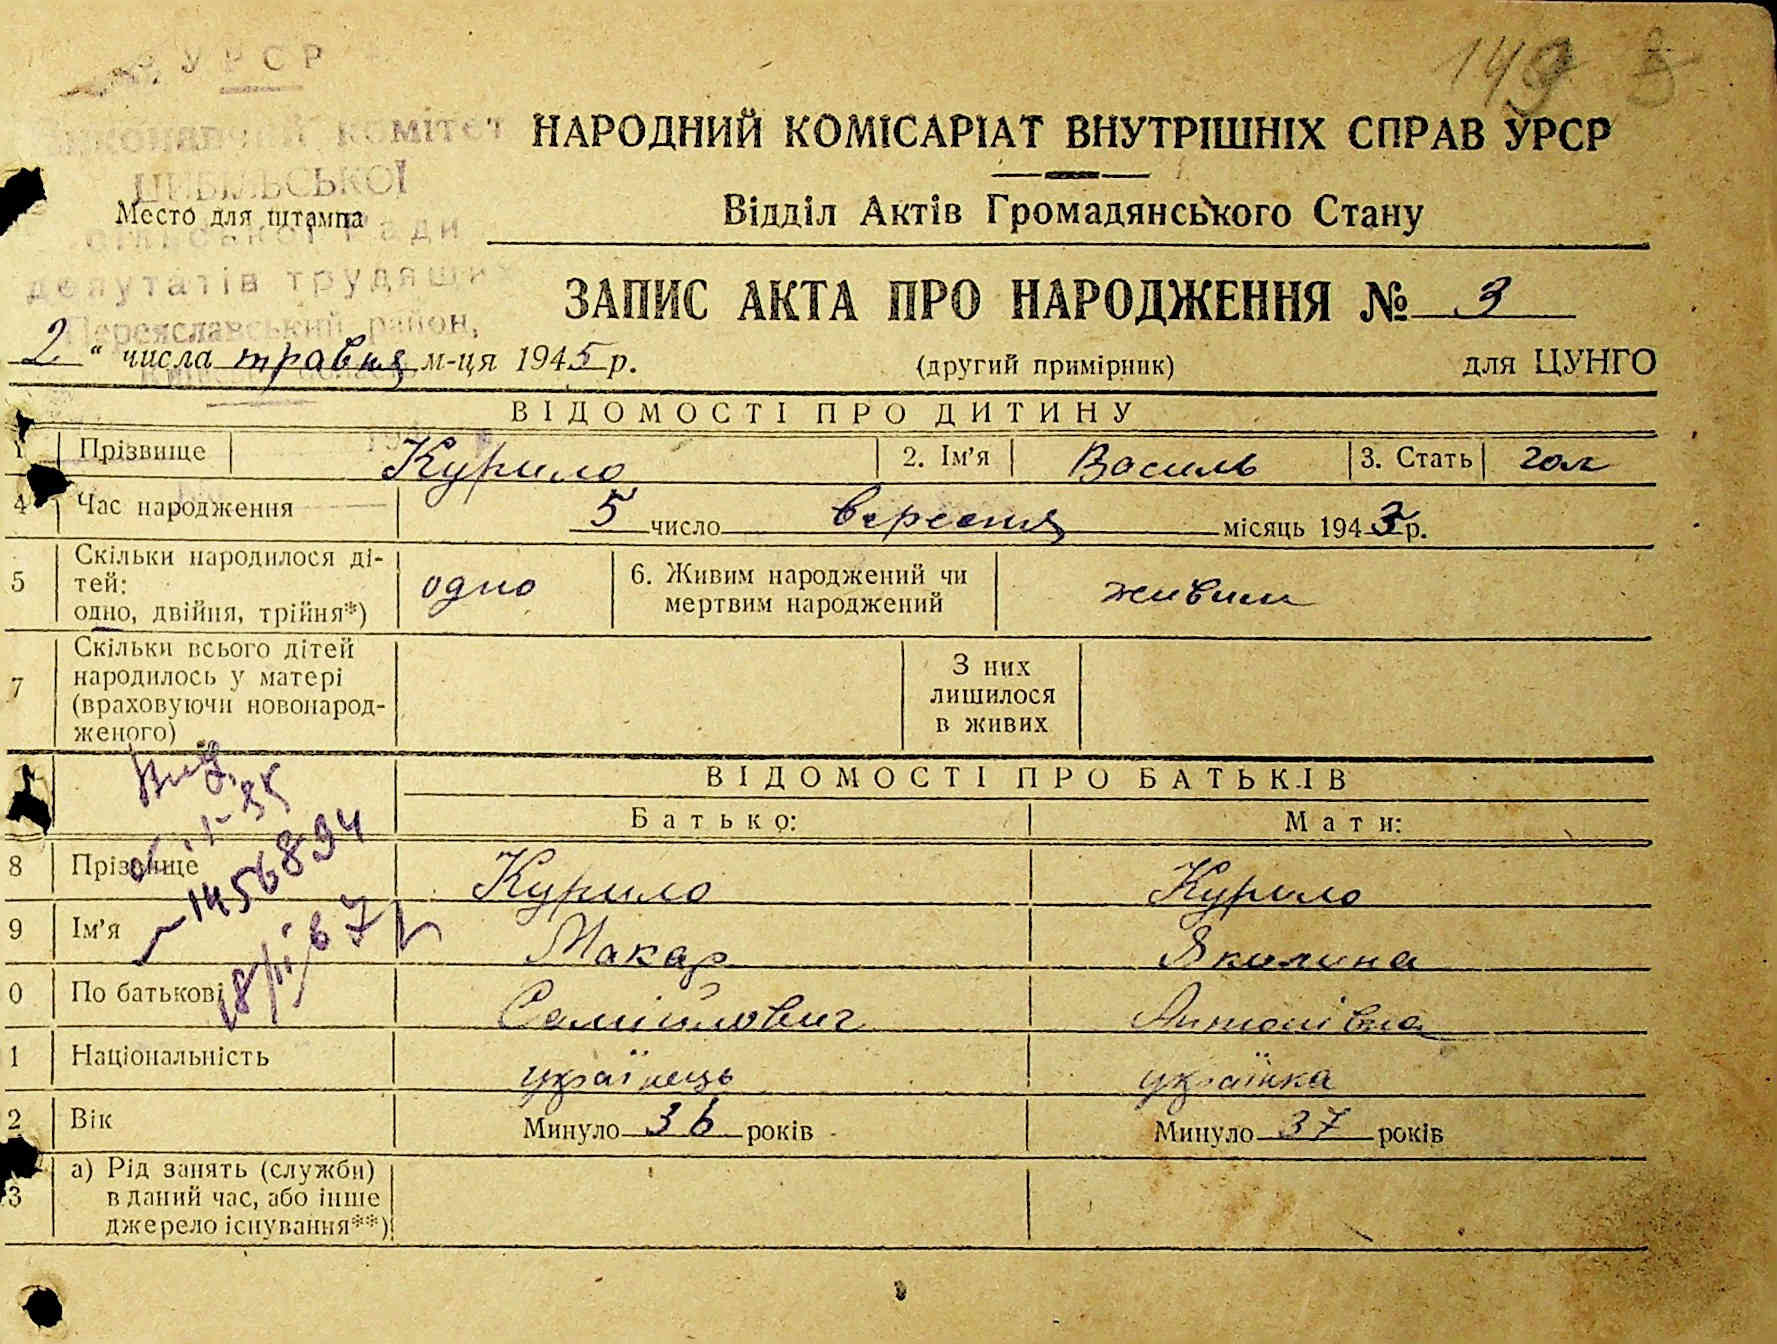 УРСР
149
Виконавчий комітет
ЦИБІЛЬСЬКОЇ
сільської Ради
депутатів трудящих
Переяславський район,
Место для штампа
НАРОДНИЙ КОМІСАРІАТ ВНУТРІШНІХ СПРАВ УРСР
Відділ Актів Громадянського Стану
ЗАПИС АКТА ПРО НАРОДЖЕННЯ № 3
2 " числа травня м-ця 1945 р. (другий примірник) для ЦУНГО
ВІДОМОСТІ ПРО ДИТИНУ
1 Прізвище Курило 2. Ім'я Василь 3. Стать чол
4 Час народження 5 число вересня місяць 1943 р.
5 Скільки народилося ді-
тей:
одно, двійня, трійня*) одно 6. Живим народжений чи
мертвим народжений живим
7 Скільки всього дітей
народилось у матері
(враховуючи новонарод-
женого) З них
лишилося
в живих
ВІДОМОСТІ ПРО БАТЬКІВ
Батько: Мати:
8 Прізвище Курило Курило
1456894
9 Ім'я Макар Якилина
0 По батькові Самійлович Антонівна
1 Національність українець українка
2 Вік Минуло 36 років Минуло 37 років
3 а) Рід занять (служби)
в даний час, або інше
джерело існування**)